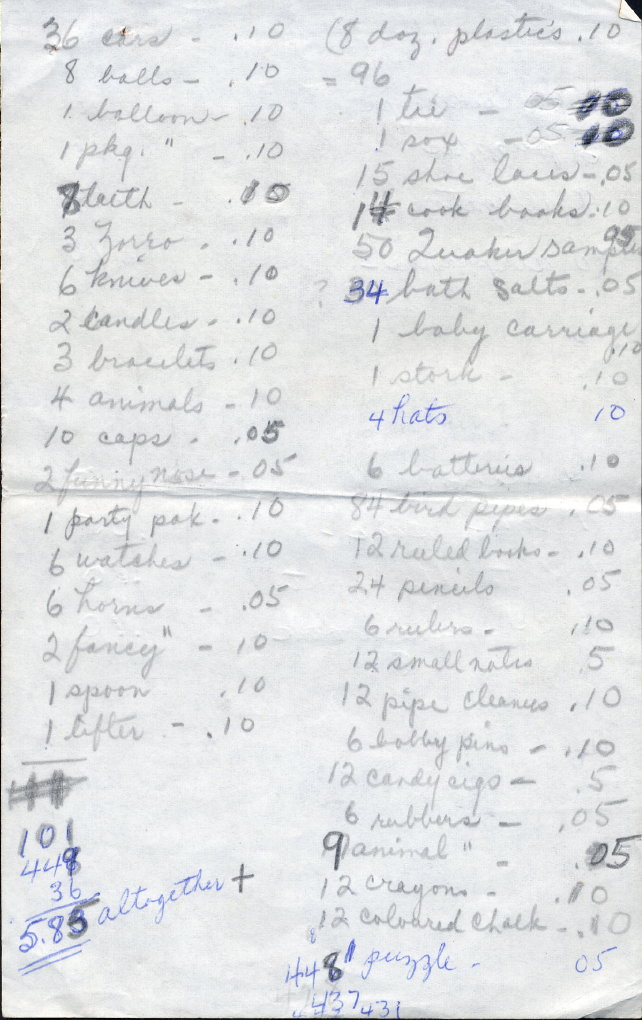 36 cars - .10
8 balls - .10
1 balloon - .10
1 pkg. " - .10
8 teeth - .10
3 Zorro - .10
6 knives - .10
2 candles - .10
3 bracelets .10
4 animals - 10
10 caps - .05
2 funny nose - .05
1 party pak - .10
6 watches - .10
6 horns - .05
2 fancy " - 10
1 spoon .10
1 lifter - .10
101
448
36
5.85 altogether +
(8 doz. plastics .10
= 96
1 tie - 05 10
1 sox - 05 10
15 shoe laces - .05
14 cook books .10
50 Quaker sample
? 34 bath salts - .05
1 baby carriage
.10
1 stork - .10
4 hats 10
6 batteries .10
84 bird pipes .05
12 ruled books - .10
24 pencils .05
6 rulers - .10
12 small notes 5
12 pipe cleaners .10
6 bobby pins - .10
12 candy cigs - .5
6 rubbers - .05
9 animal " - .05
12 crayons - .10
12 coloured chalk - .10
8 " puzzle - 05
448
437 431